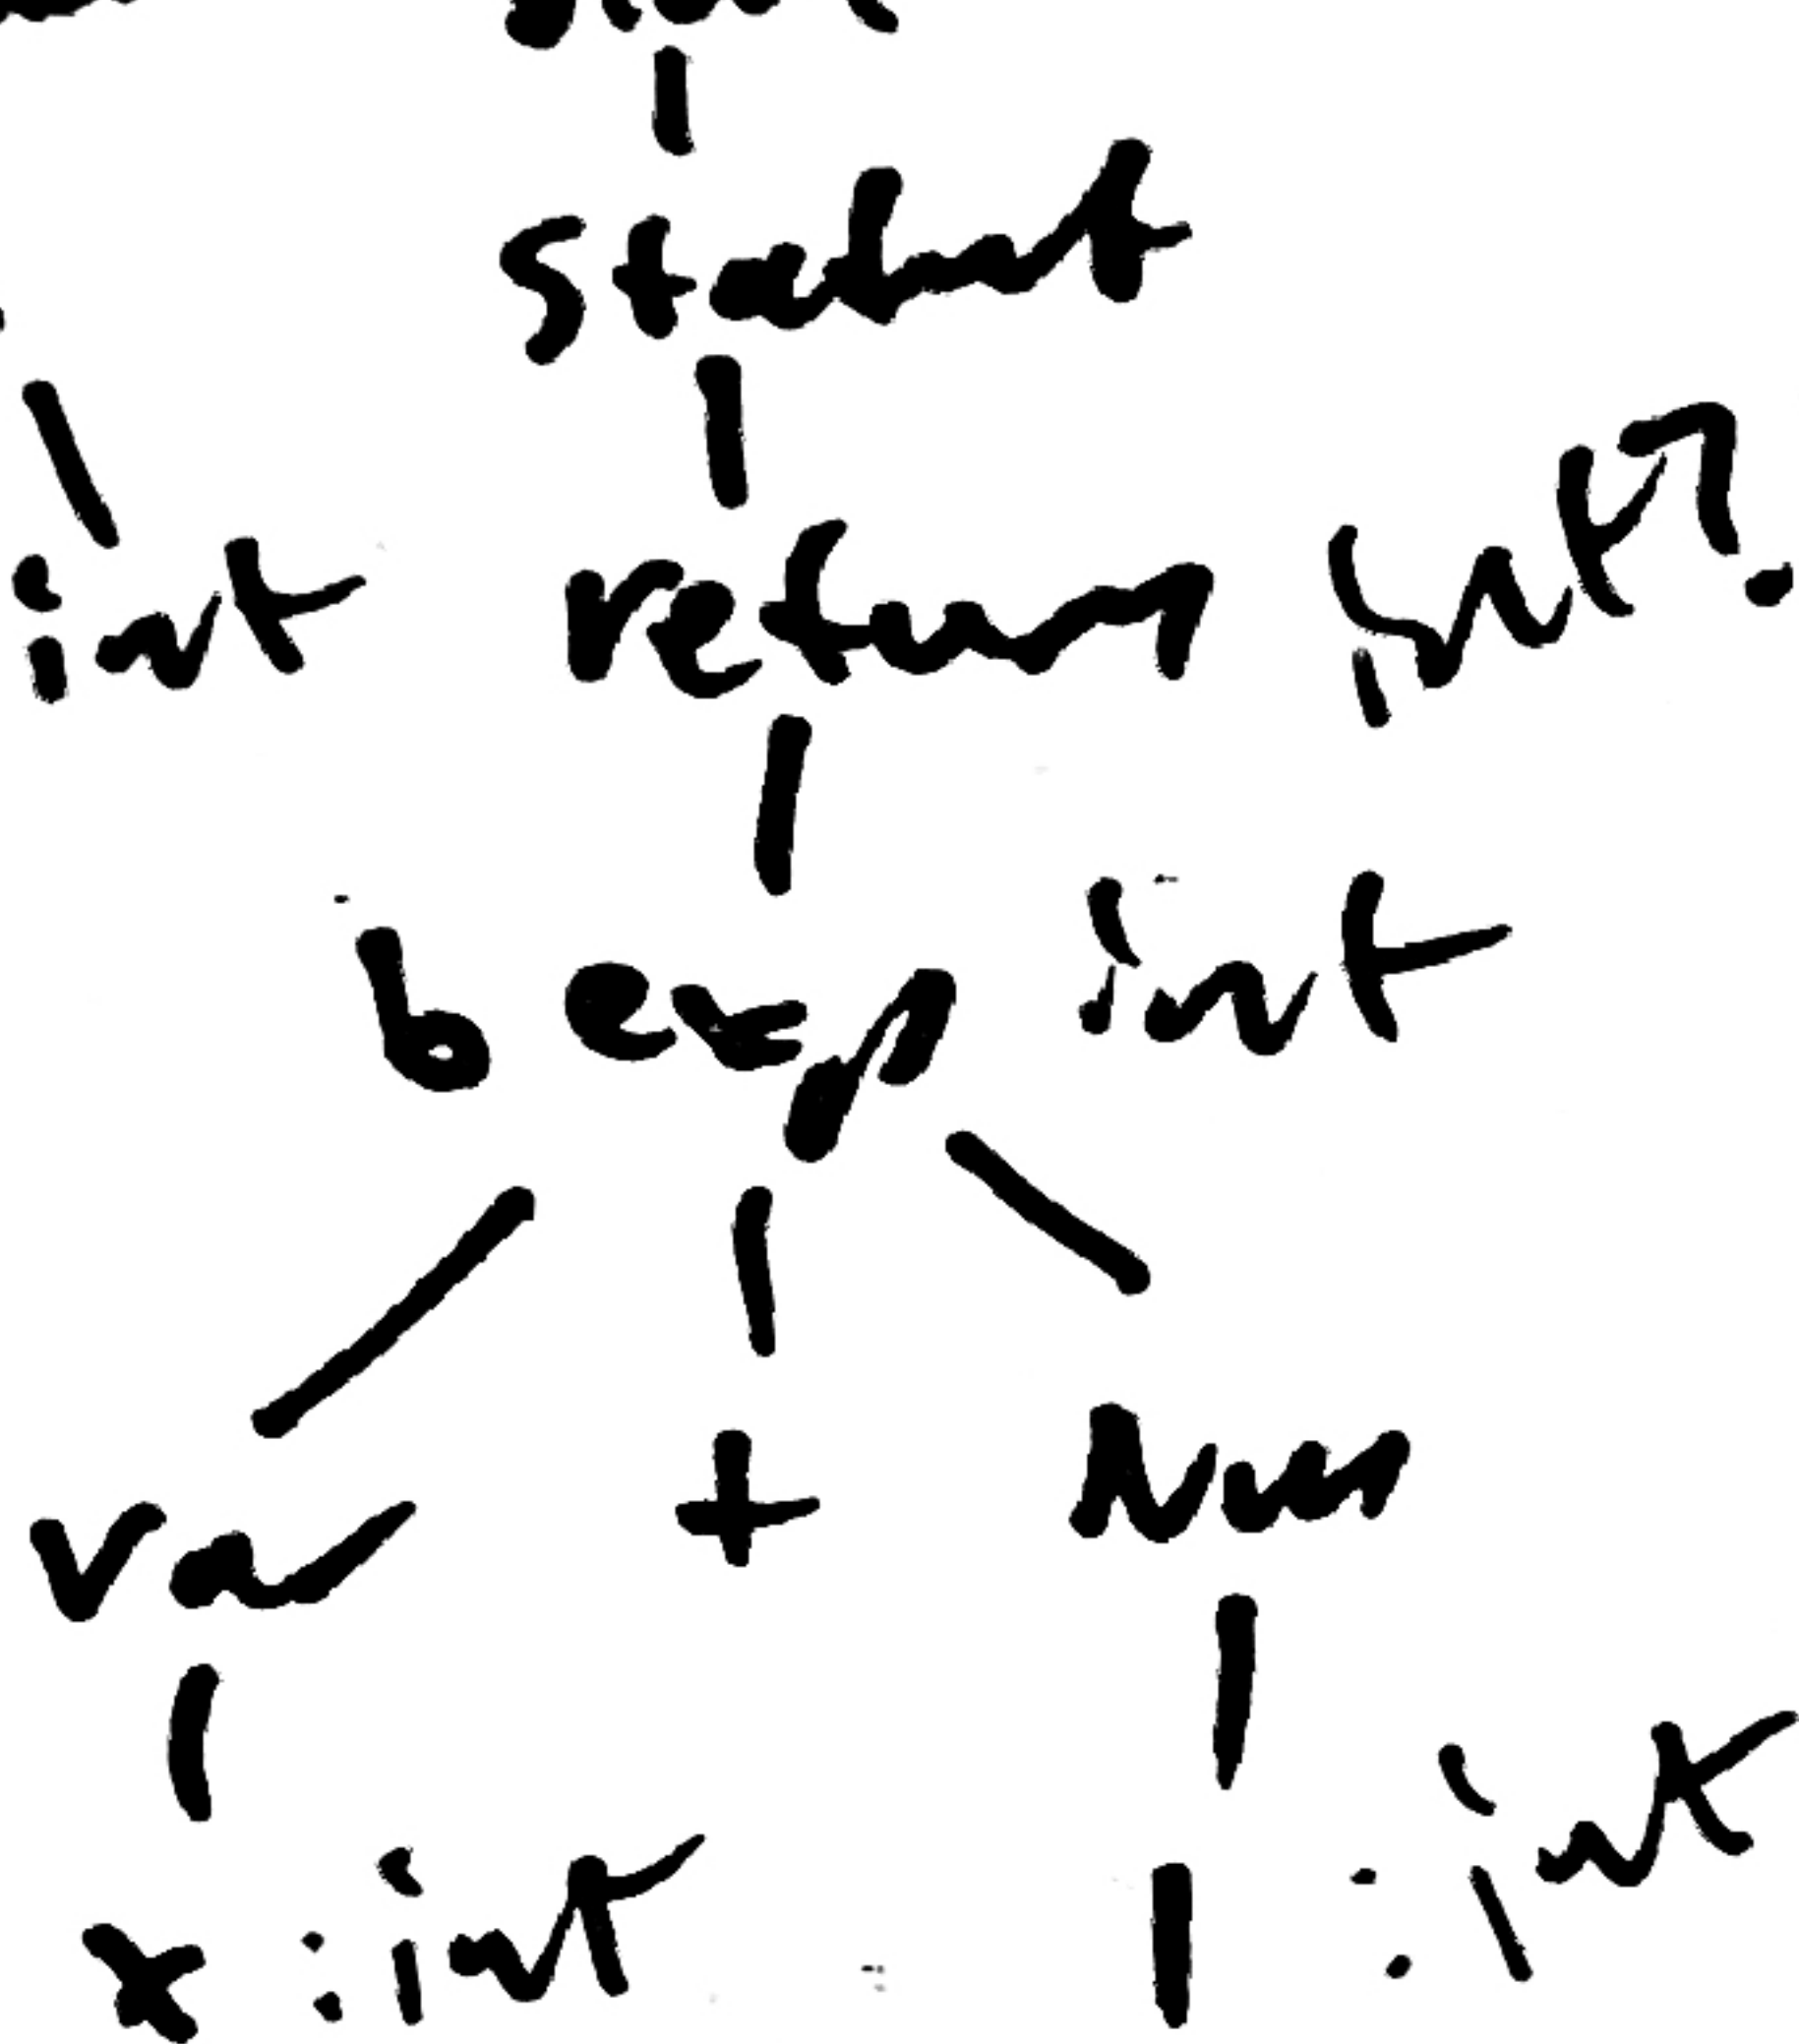 statmt
int return int?
b exp int
Var + Num
x : int 1 : int